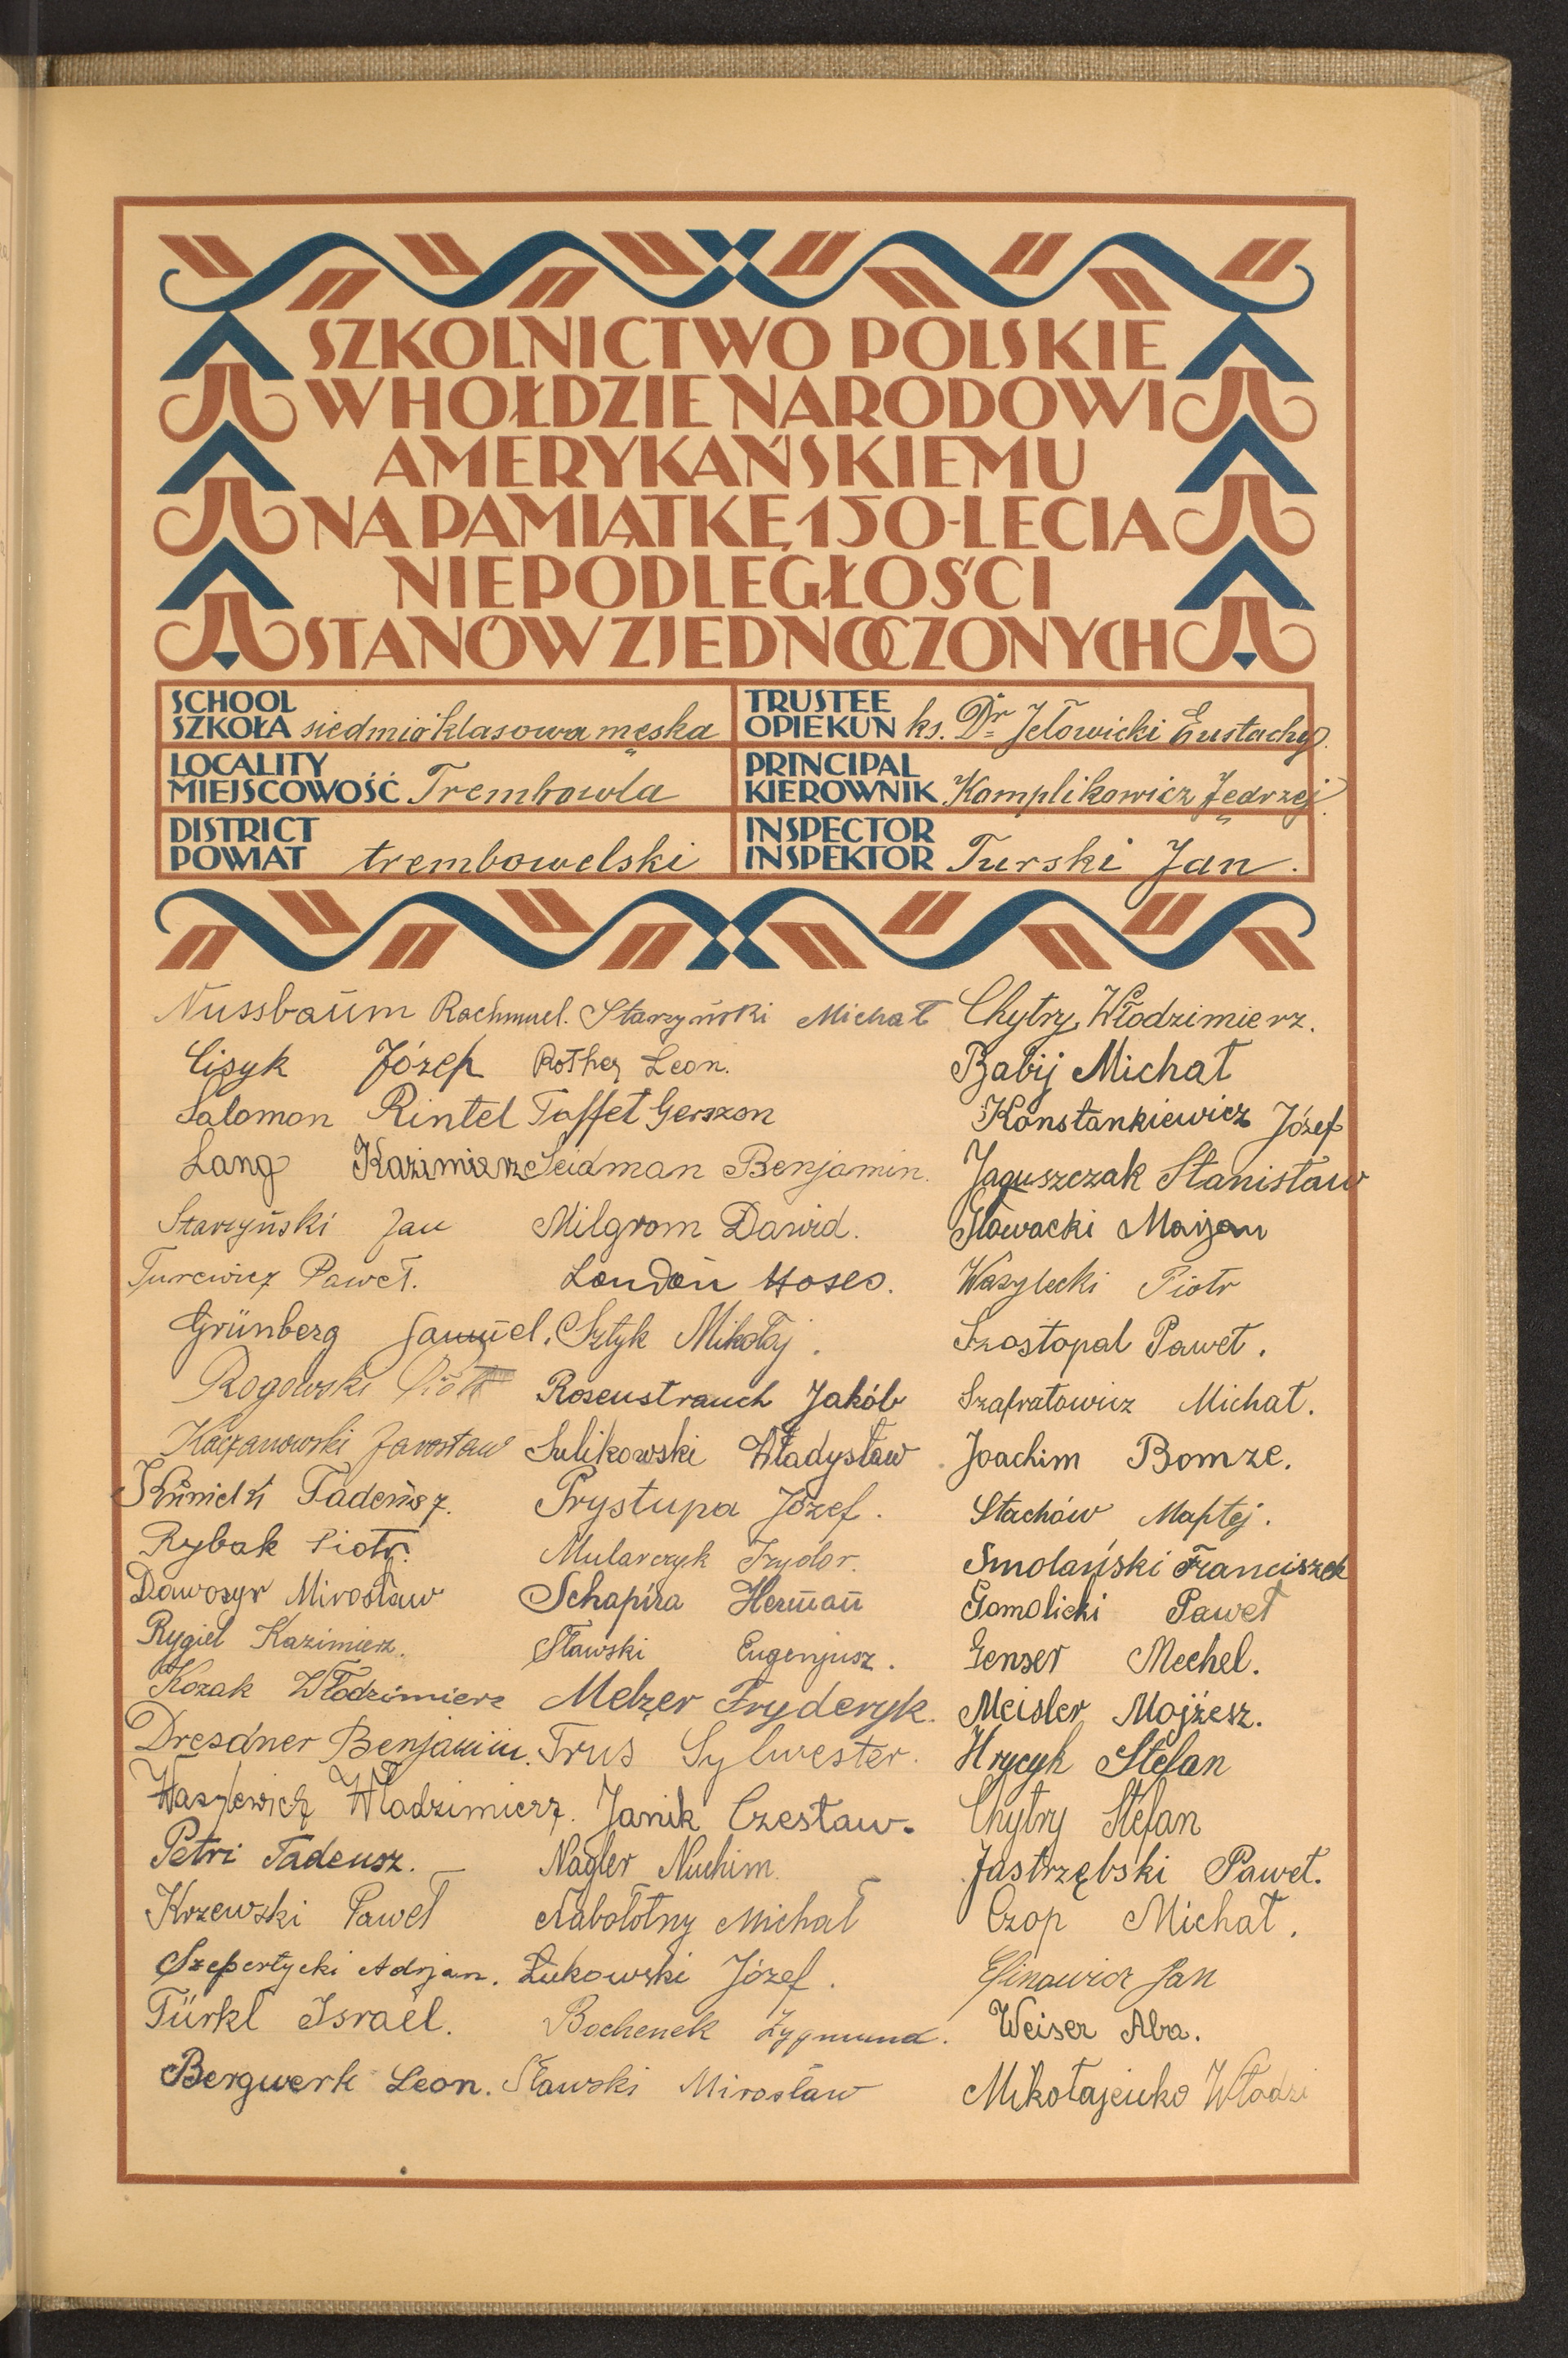 SZKOLNICTWO POLSKIE
W HOŁDZIE NARODOWI
AMERYKAŃSKIEMU
NA PAMIĄTKĘ 150-LECIA
NIEPODLEGŁOŚCI
STANÓW ZJEDNOCZONYCH
SCHOOL
SZKOŁA siedmioklasowa męska
TRUSTEE
OPIEKUN ks. Dr Jełowicki Eustachy.
LOCALITY
MIEJSCOWOŚĆ Trembowla
PRINCIPAL
KIEROWNIK Komplikowicz Jędrzej.
DISTRICT
POWIAT trembowelski
INSPECTOR
INSPEKTOR Turski Jan.
Nussbaum Rachmuel.
Cisyk Józef
Salomon Rintel
Lang Kazimierz
Starzyński Jan
Turewicz Paweł.
Grünberg Samuel.
Rogowski Piotr
Kaczanowski Jarosław
Tadeusz.
Rybak Piotr.
Dawosyr Mirosław
Rygiel Kazimierz.
Kozak Włodzimierz
Dresdner Benjamin.
Wasylewicz Włodzimierz.
Petri Tadeusz.
Krzewski Paweł
Szeperłycki Adrjan.
Türkl Israel.
Bergwerk Leon.
Starzyński Michał
Rother Leon.
Taffet Gerszon
Seidman Benjamin.
Milgrom Dawid.
London Moses.
Sztyk Mikołaj.
Rosenstrauch Jakób
Sulikowski Władysław
Prystupa Józef.
Mularczyk Izydor.
Schapira Herman
Sławski Eugenjusz.
Melzer Fryderyk.
Trus Sylwester.
Janik Czesław.
Nagler Nuchim.
Nabołotny Michał
Łukowski Józef.
Bochenek Zygmund.
Sławski Mirosław
Chytry Włodzimierz.
Babij Michał
Konstankiewicz Józef
Jaguszczak Stanisław
Sławacki Marjan
Wasylecki Piotr
Szostopal Paweł.
Szafratowicz Michał.
Joachim Bomze.
Stachów Maftej.
Smolański Franciszek
Gomolicki Paweł
Genser Mechel.
Meisler Mojżesz.
Hrycyk Stefan
Chytry Stefan
Jastrzębski Paweł.
Czop Michał.
Glinowicz Jan
Weiser Aba.
Mikołajenko Włodzi